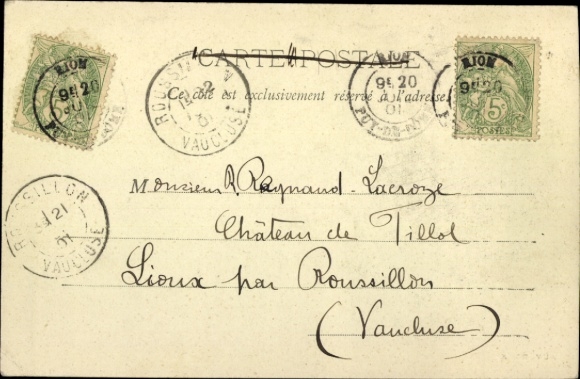 CARTE POSTALE
Ce côté est exclusivement réservé à l'adresse
RIOM
9E 20
01
PUY-DE-DOME
RIOM
9E 20
5c
POSTES
RIOM
9E 20
ROUSSILLON
VAUCLUSE
Monsieur R. Raynaud-Lacroze
Château de Tillol
Lioux par Roussillon
(Vaucluse)
ROUSSILLON
21
01
VAUCLUSE